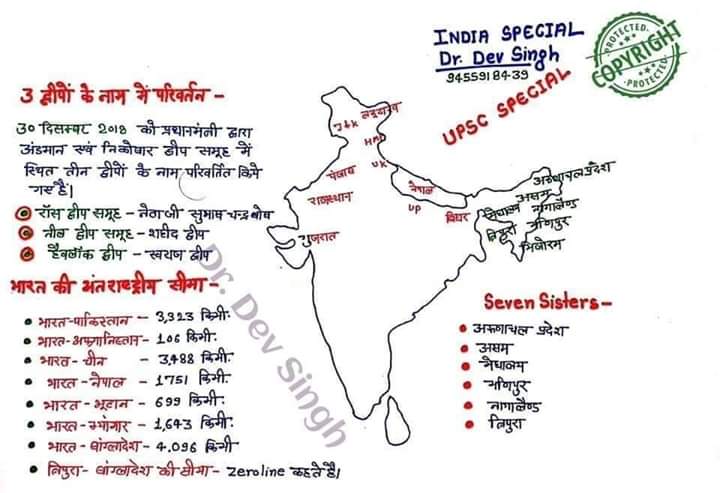 INDIA SPECIAL
Dr. Dev Singh
9455918439
UPSC SPECIAL
PROTECTED
COPYRIGHT
PROTECTED
3 द्वीपों के नाम में परिवर्तन -
30 दिसम्बर 2018 को प्रधानमंत्री द्वारा
अंडमान एवं निकोबार द्वीप समूह में
स्थित तीन द्वीपों के नाम परिवर्तित किये
गए हैं।
रॉस द्वीप समूह - नेताजी सुभाष चन्द्र बोस
नील द्वीप समूह - शहीद द्वीप
हैवलॉक द्वीप - स्वराज द्वीप
भारत की अंतराष्ट्रीय सीमा -
भारत-पाकिस्तान - 3,323 किमी.
भारत-अफगानिस्तान - 106 किमी.
भारत-चीन - 3,488 किमी.
भारत-नेपाल - 1751 किमी.
भारत-भूटान - 699 किमी.
भारत-म्यांमार - 1,643 किमी.
भारत-बांग्लादेश - 4.096 किमी
त्रिपुरा-बांग्लादेश की सीमा - zeroline कहते है।
J&k
HP
पंजाब
UK
राजस्थान
नेपाल
UP
बिहार
गुजरात
अरुणाचल प्रदेश
असम
मेघालय नागालैण्ड
त्रिपुरा मणिपुर
मिजोरम
Seven Sisters -
अरुणाचल प्रदेश
असम
मेघालय
मणिपुर
नागालैण्ड
त्रिपुरा
Dr. Dev Singh